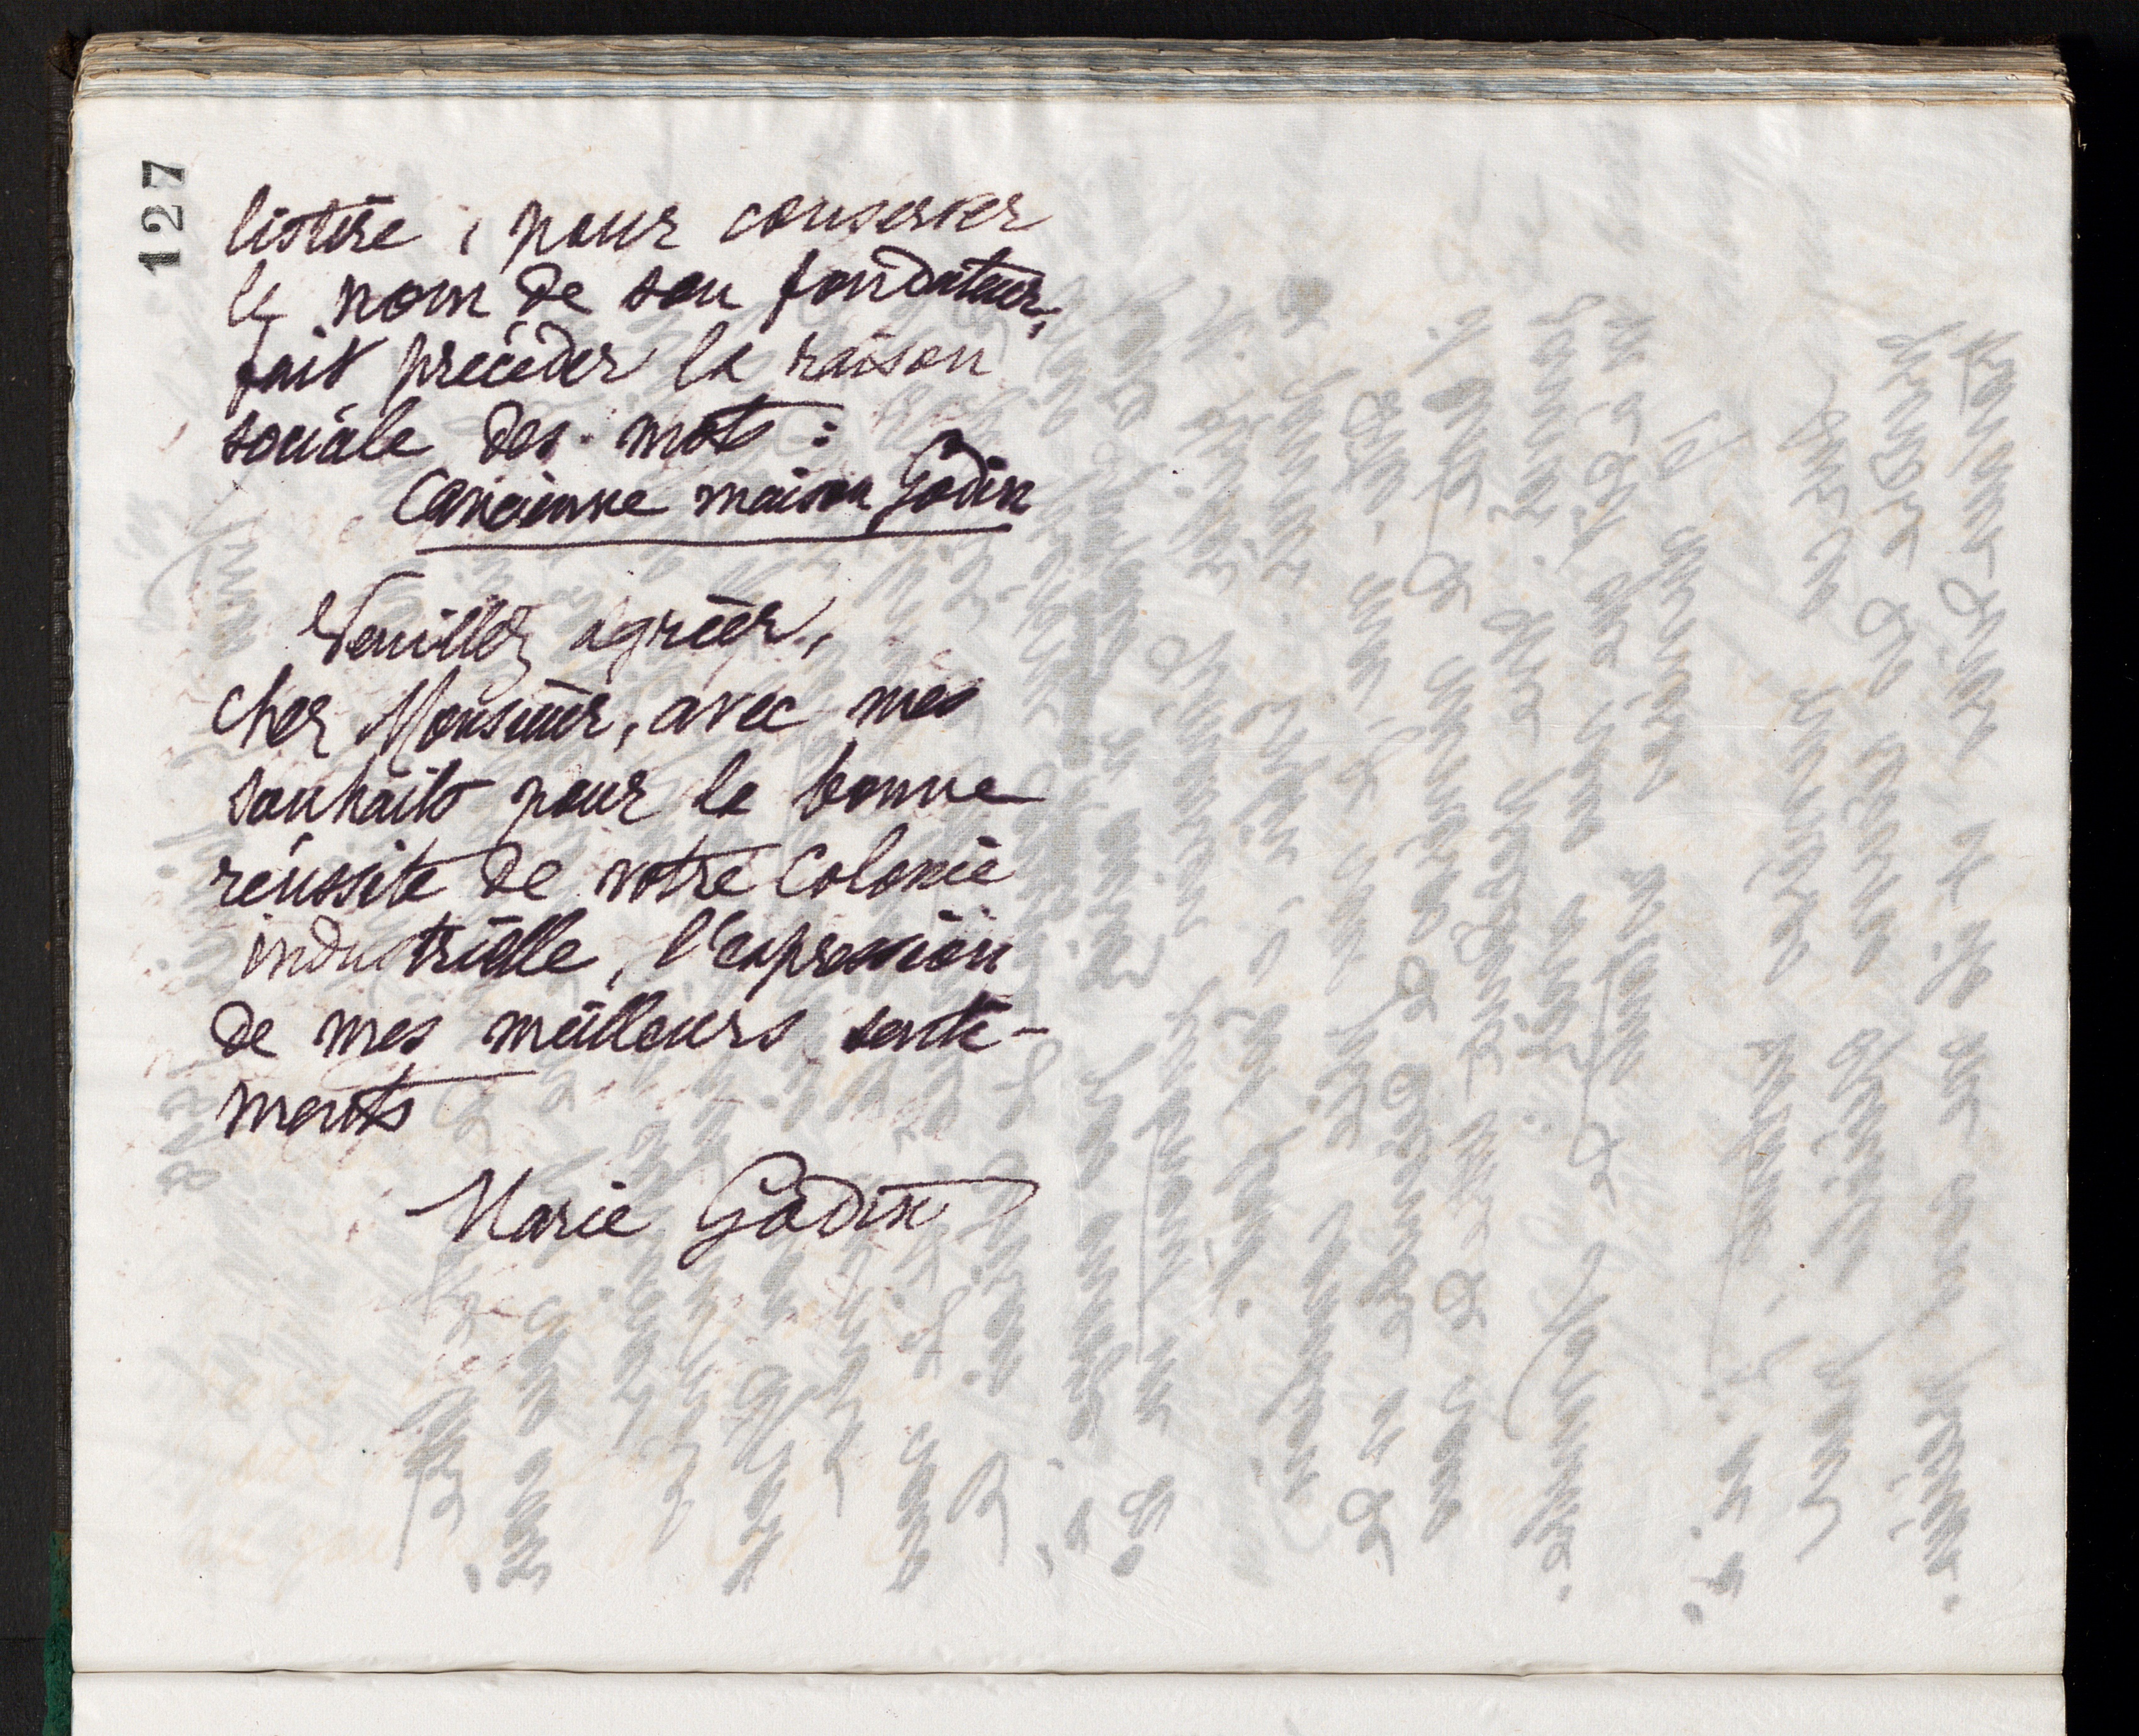 127
listère, pour conserver
le nom de son fondateur,
fait précéder la raison
sociale des mots :
Ancienne maison Godin
Veuillez agréer,
cher Monsieur, avec mes
souhaits pour la bonne
réussite de votre Colonie
industrielle, l'expression
de mes meilleurs senti-
ments
Marie Godin